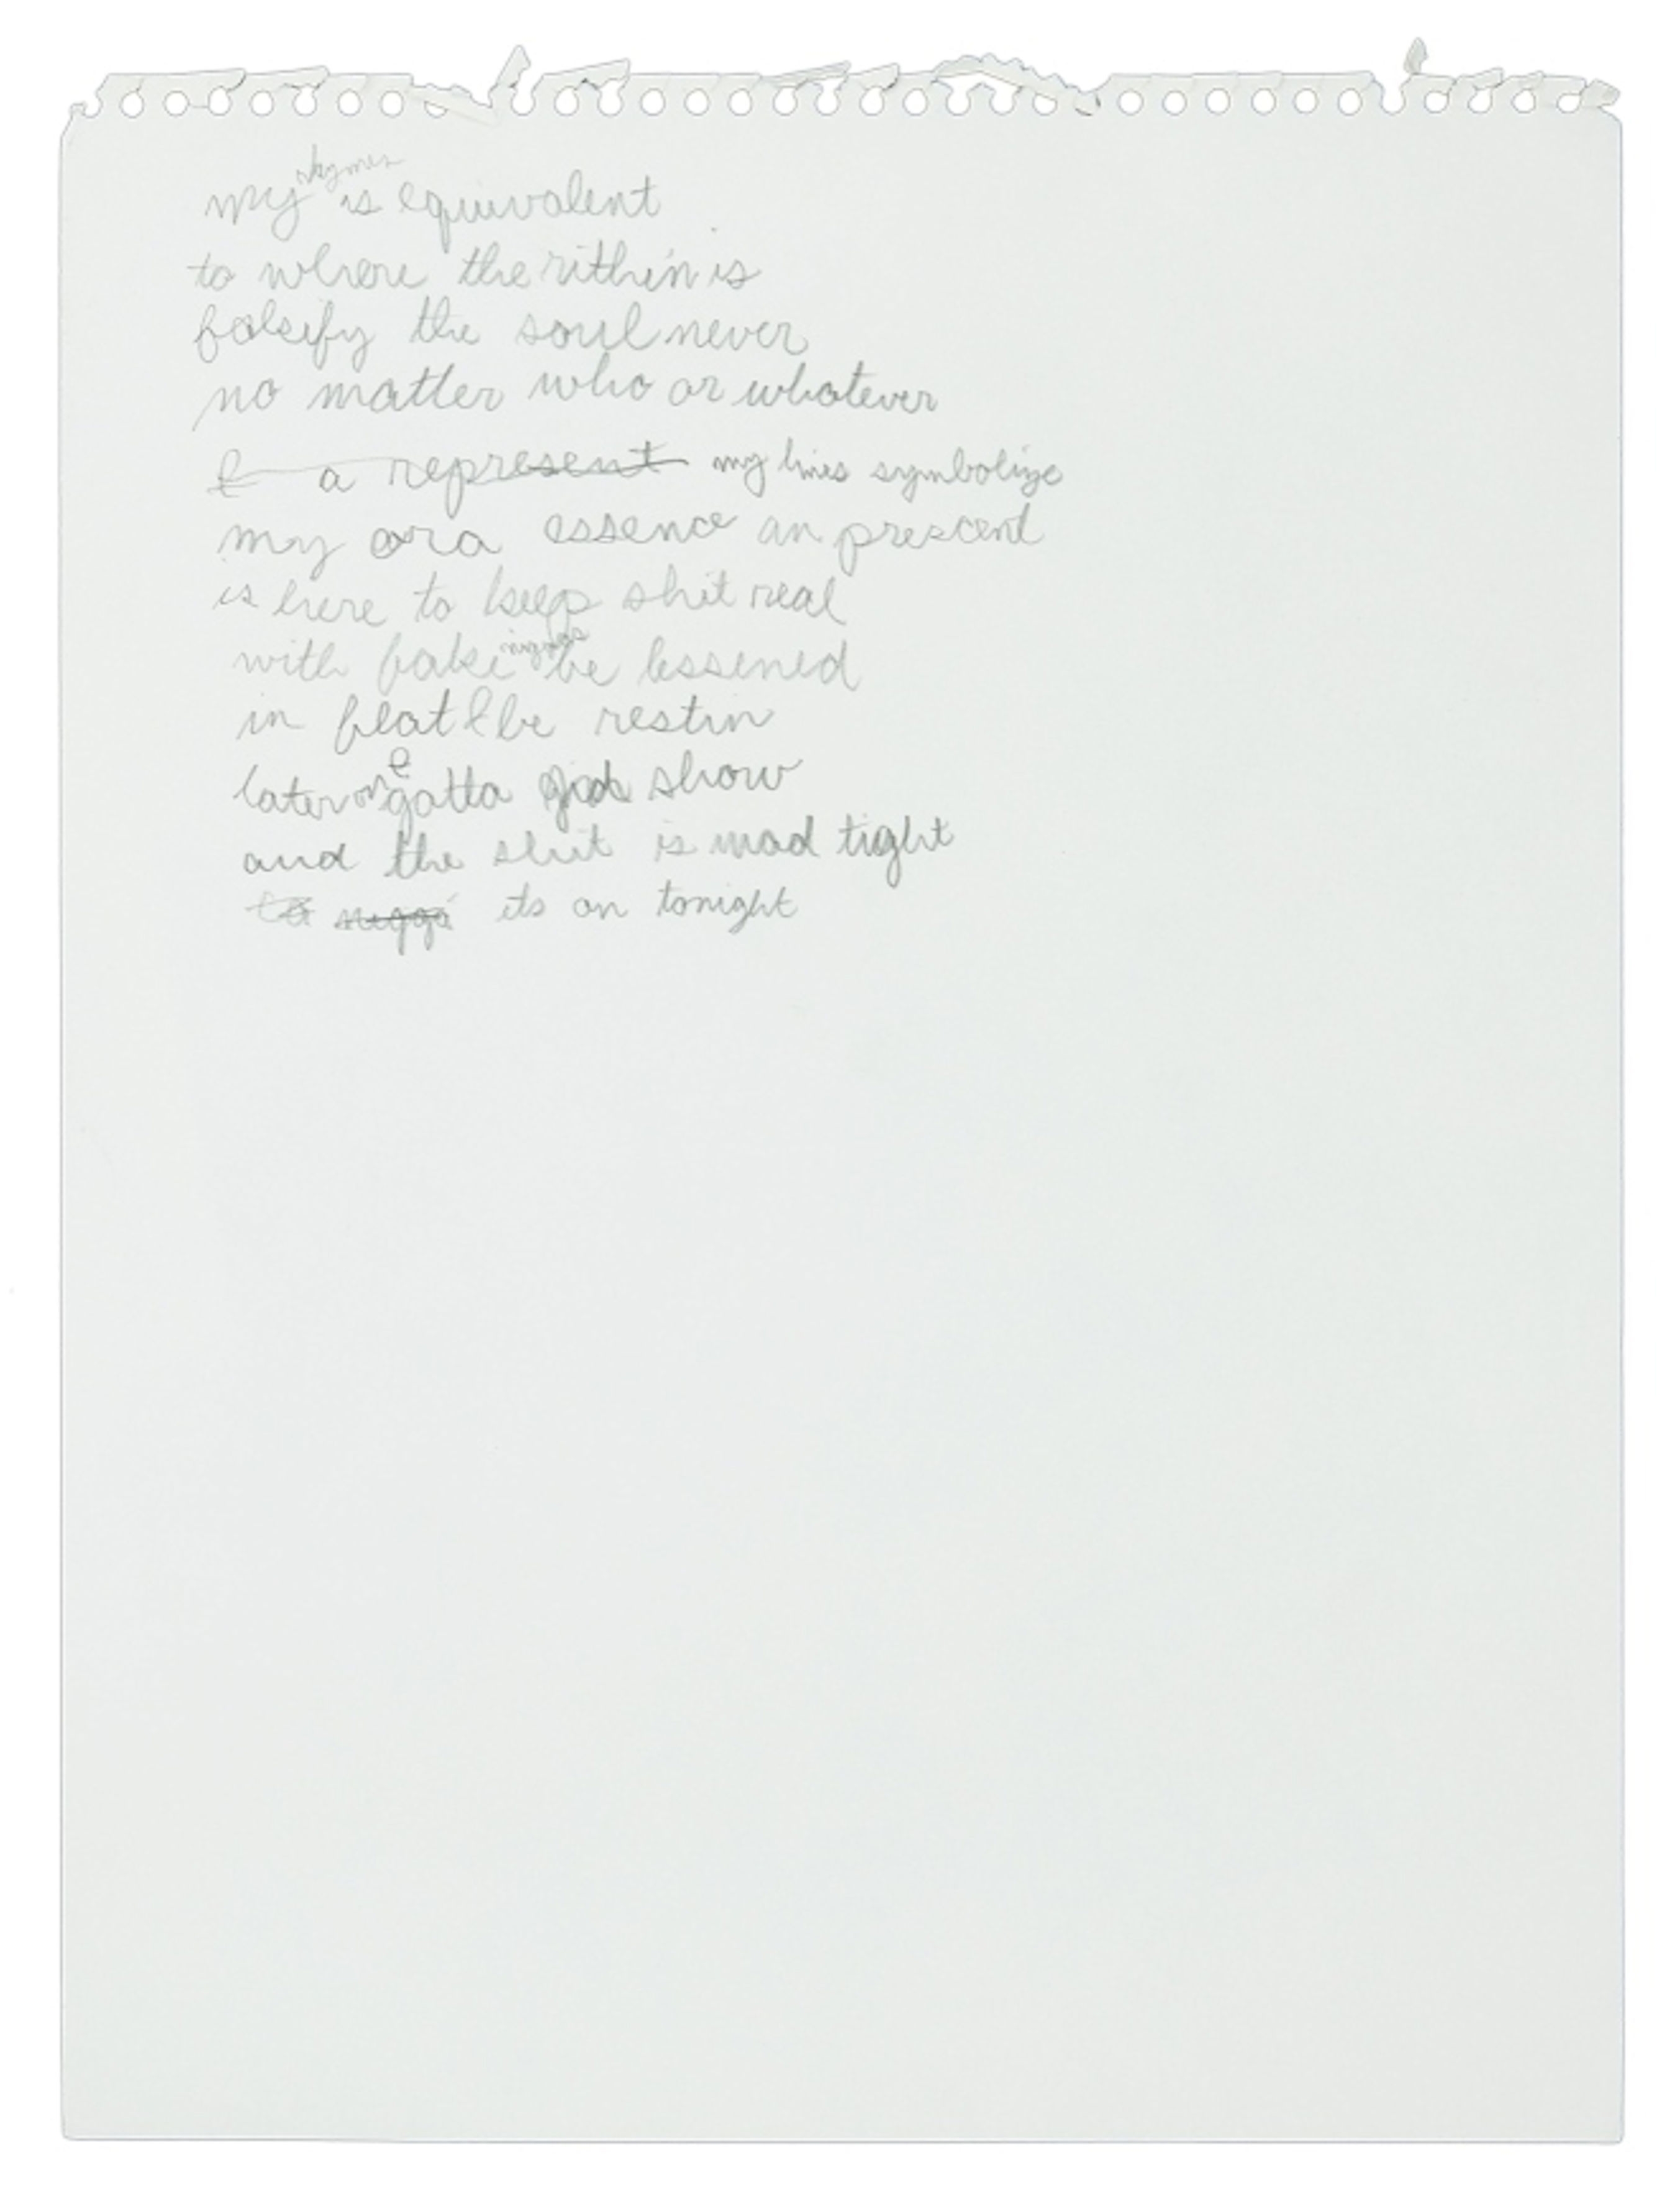 my rhymes is equivalent
to where the rithin is
falsify the soul never
no matter who or whatever
I a represent my lines symbolize
my ora essence an prescend
is here to keep shit real
with fake niggas be lessened
in flat I be restin
later on I gotta show
and the shit is mad tight
to nigga its on tonight